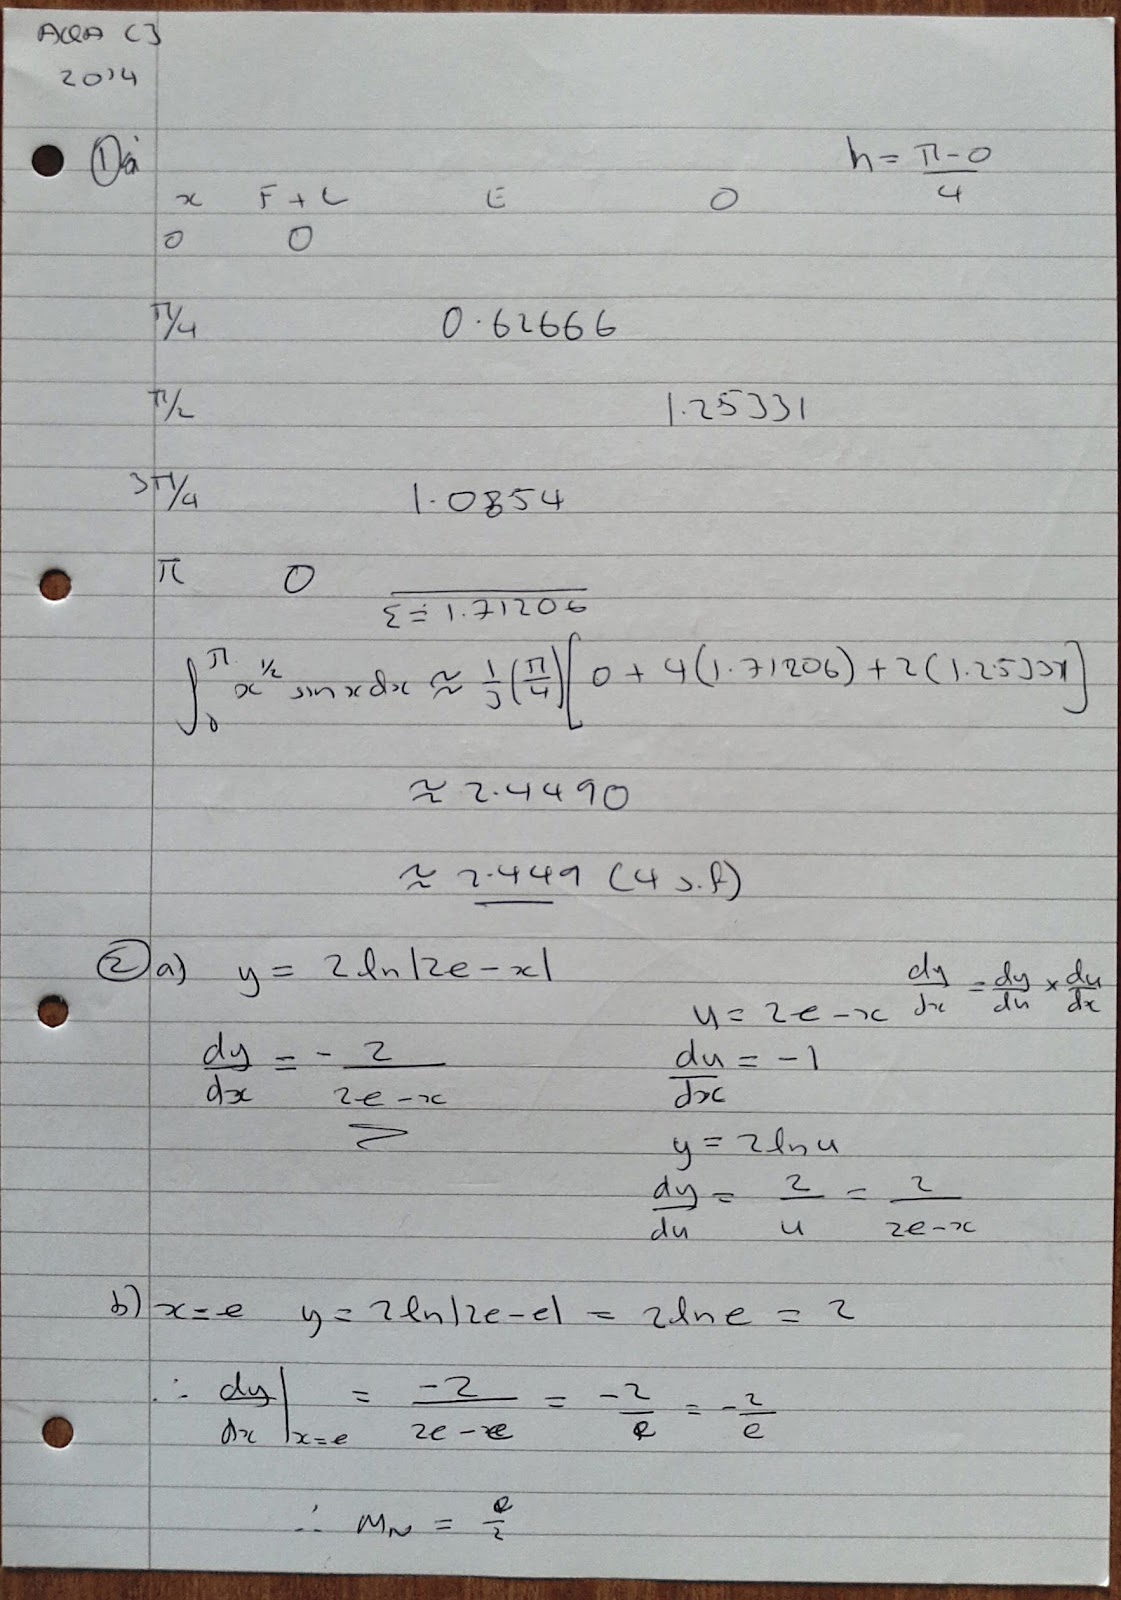 AQA C3
2014
① a) h = π-0/4
x F+L E O
0 0
π/4 0.62666
π/2 1.25331
3π/4 1.0854
π 0
Σ = 1.71206
∫₀^π x^1/2 sin x dx ≈ 1/3 (π/4) [0 + 4(1.71206) + 2(1.25331)]
≈ 2.4490
≈ 2.449 (4 s.f)
② a) y = 2 ln|2e-x| dy/dx = dy/du × du/dx
u = 2e-x
dy/dx = - 2/2e-x du/dx = -1
y = 2 ln u
dy/du = 2/u = 2/2e-x
b) x=e y = 2 ln|2e-e| = 2 ln e = 2
∴ dy/dx |x=e = -2/2e-e = -2/e = -2/e
∴ M_N = e/2